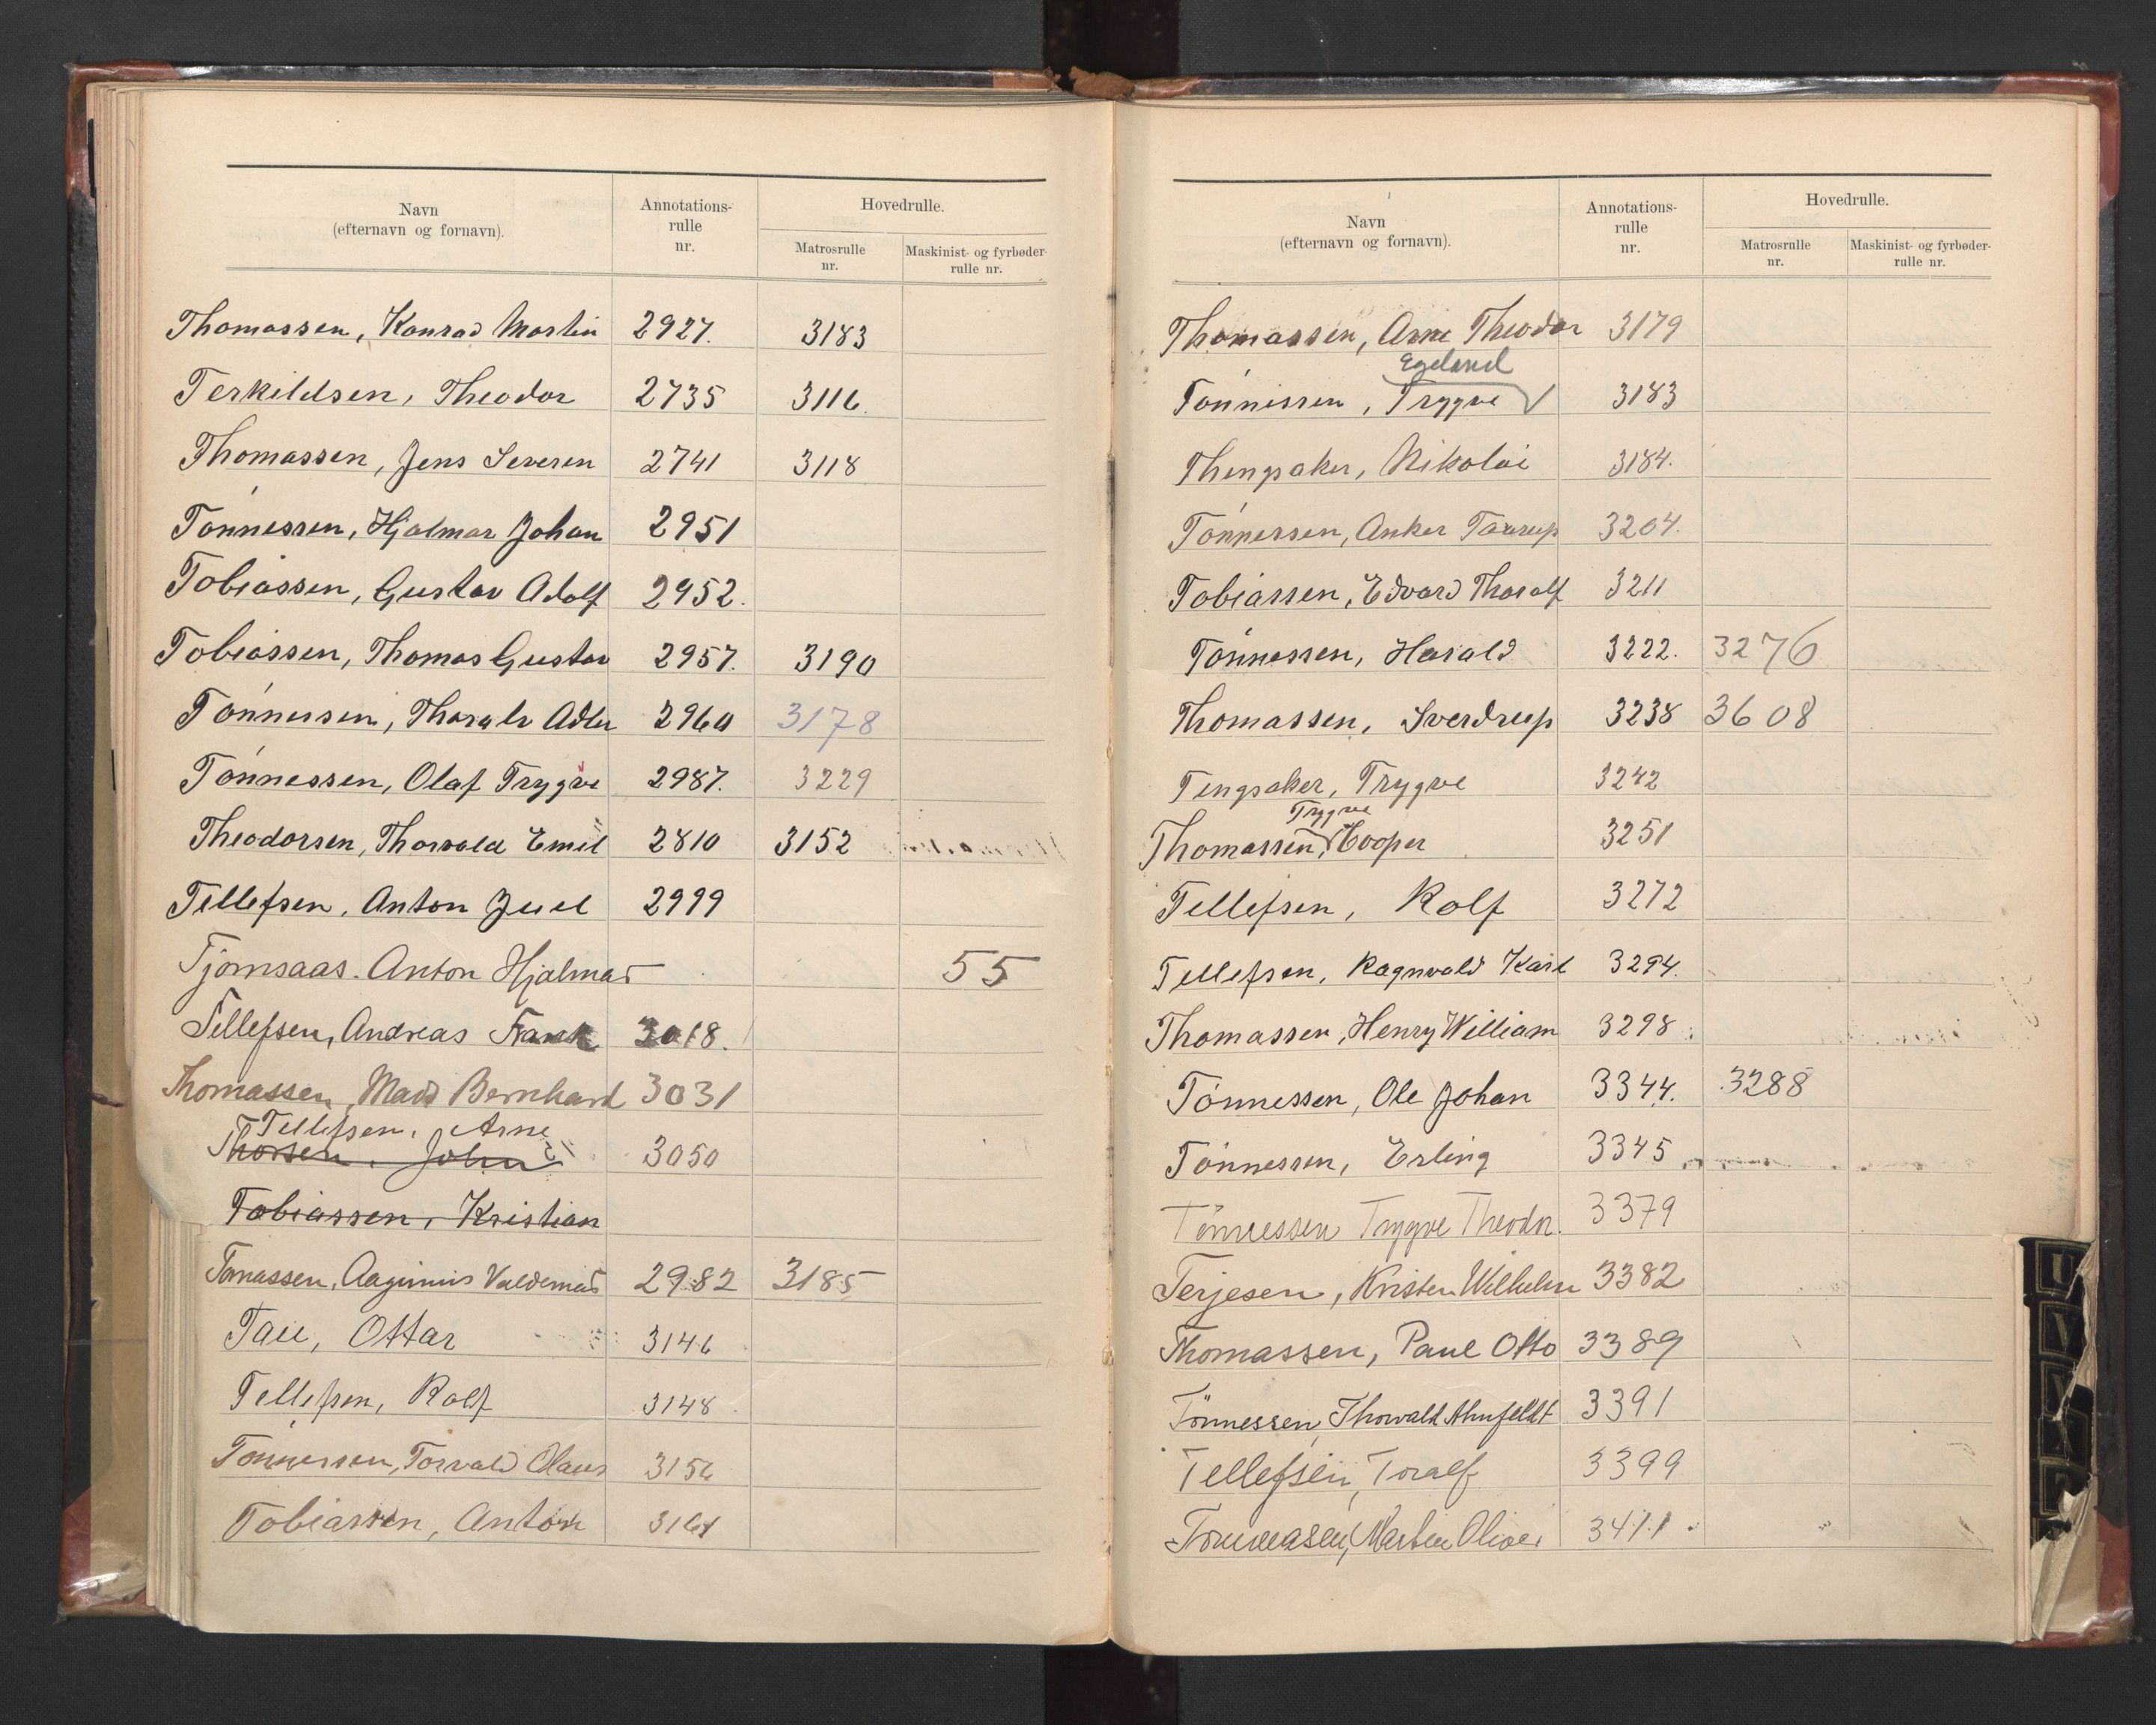 Navn (efternavn og fornavn). Annotations-rulle nr. Hovedrulle. Matrosrulle nr. Maskinist- og fyrbøder-rulle nr.
Thomassen, Konrad Martin 2927. 3183
Terkildsen, Theodor 2735 3116.
Thomassen, Jens Severin 2741 3118
Tönnessen, Hjalmar Johan 2951
Tobiassen, Gustav Adolf 2952.
Tobiassen, Thomas Gustav 2957. 3190
Tönnessen, Adler 2960 3178
Tönnessen, Olaf Trygve 2987. 3229
Theodorsen, Thorvald Emil 2810 3152
Tellefsen, Anton Juel 2999
Tjomsaas. Anton Hjalmar 55
Tellefsen, Andreas Frank 3018.
Thomassen, Mads Bernhard 3031
Tellefsen, Arne
Thorsen, John 3050
Tobiassen, Kristian
Tomassen, Valdemar 2982 3185
Tau, Ottar 3146
Tellefsen, Rolf 3148
Tönnessen, Torvald Olaus 3156
Tobiassen, Anton 3161
Navn (efternavn og fornavn). Annotations-rulle nr. Hovedrulle. Matrosrulle nr. Maskinist- og fyrbøder-rulle nr.
Thomassen, Arne Theodor 3179
Egeland
Tönnissen, Trygve 3183
Thengsaker, Nikolai 3184.
Tönnessen, Anker Taarup 3204.
Tobiassen, Edvard Thoralf 3211
Tönnessen, Harald 3222. 3276
Thomassen, Sverdrup 3238 3608
Tengsaker, Trygve 3242
Trygve
Thomassen, Cooper 3251
Tellefsen, Rolf 3272
Tellefsen, Ragnvald Karl 3294.
Thomassen, Henry William 3298
Tönnessen, Ole Johan 3344. 3288
Tönnessen, Erling 3345
Tönnessen Trygve Theodor. 3379
Terjesen, Kristen Wilhelm 3382
Thomassen, Paul Otto 3389
Tönnessen, Thorvald 3391
Tellefsen, Toralf 3399
Martin Oliver 3411